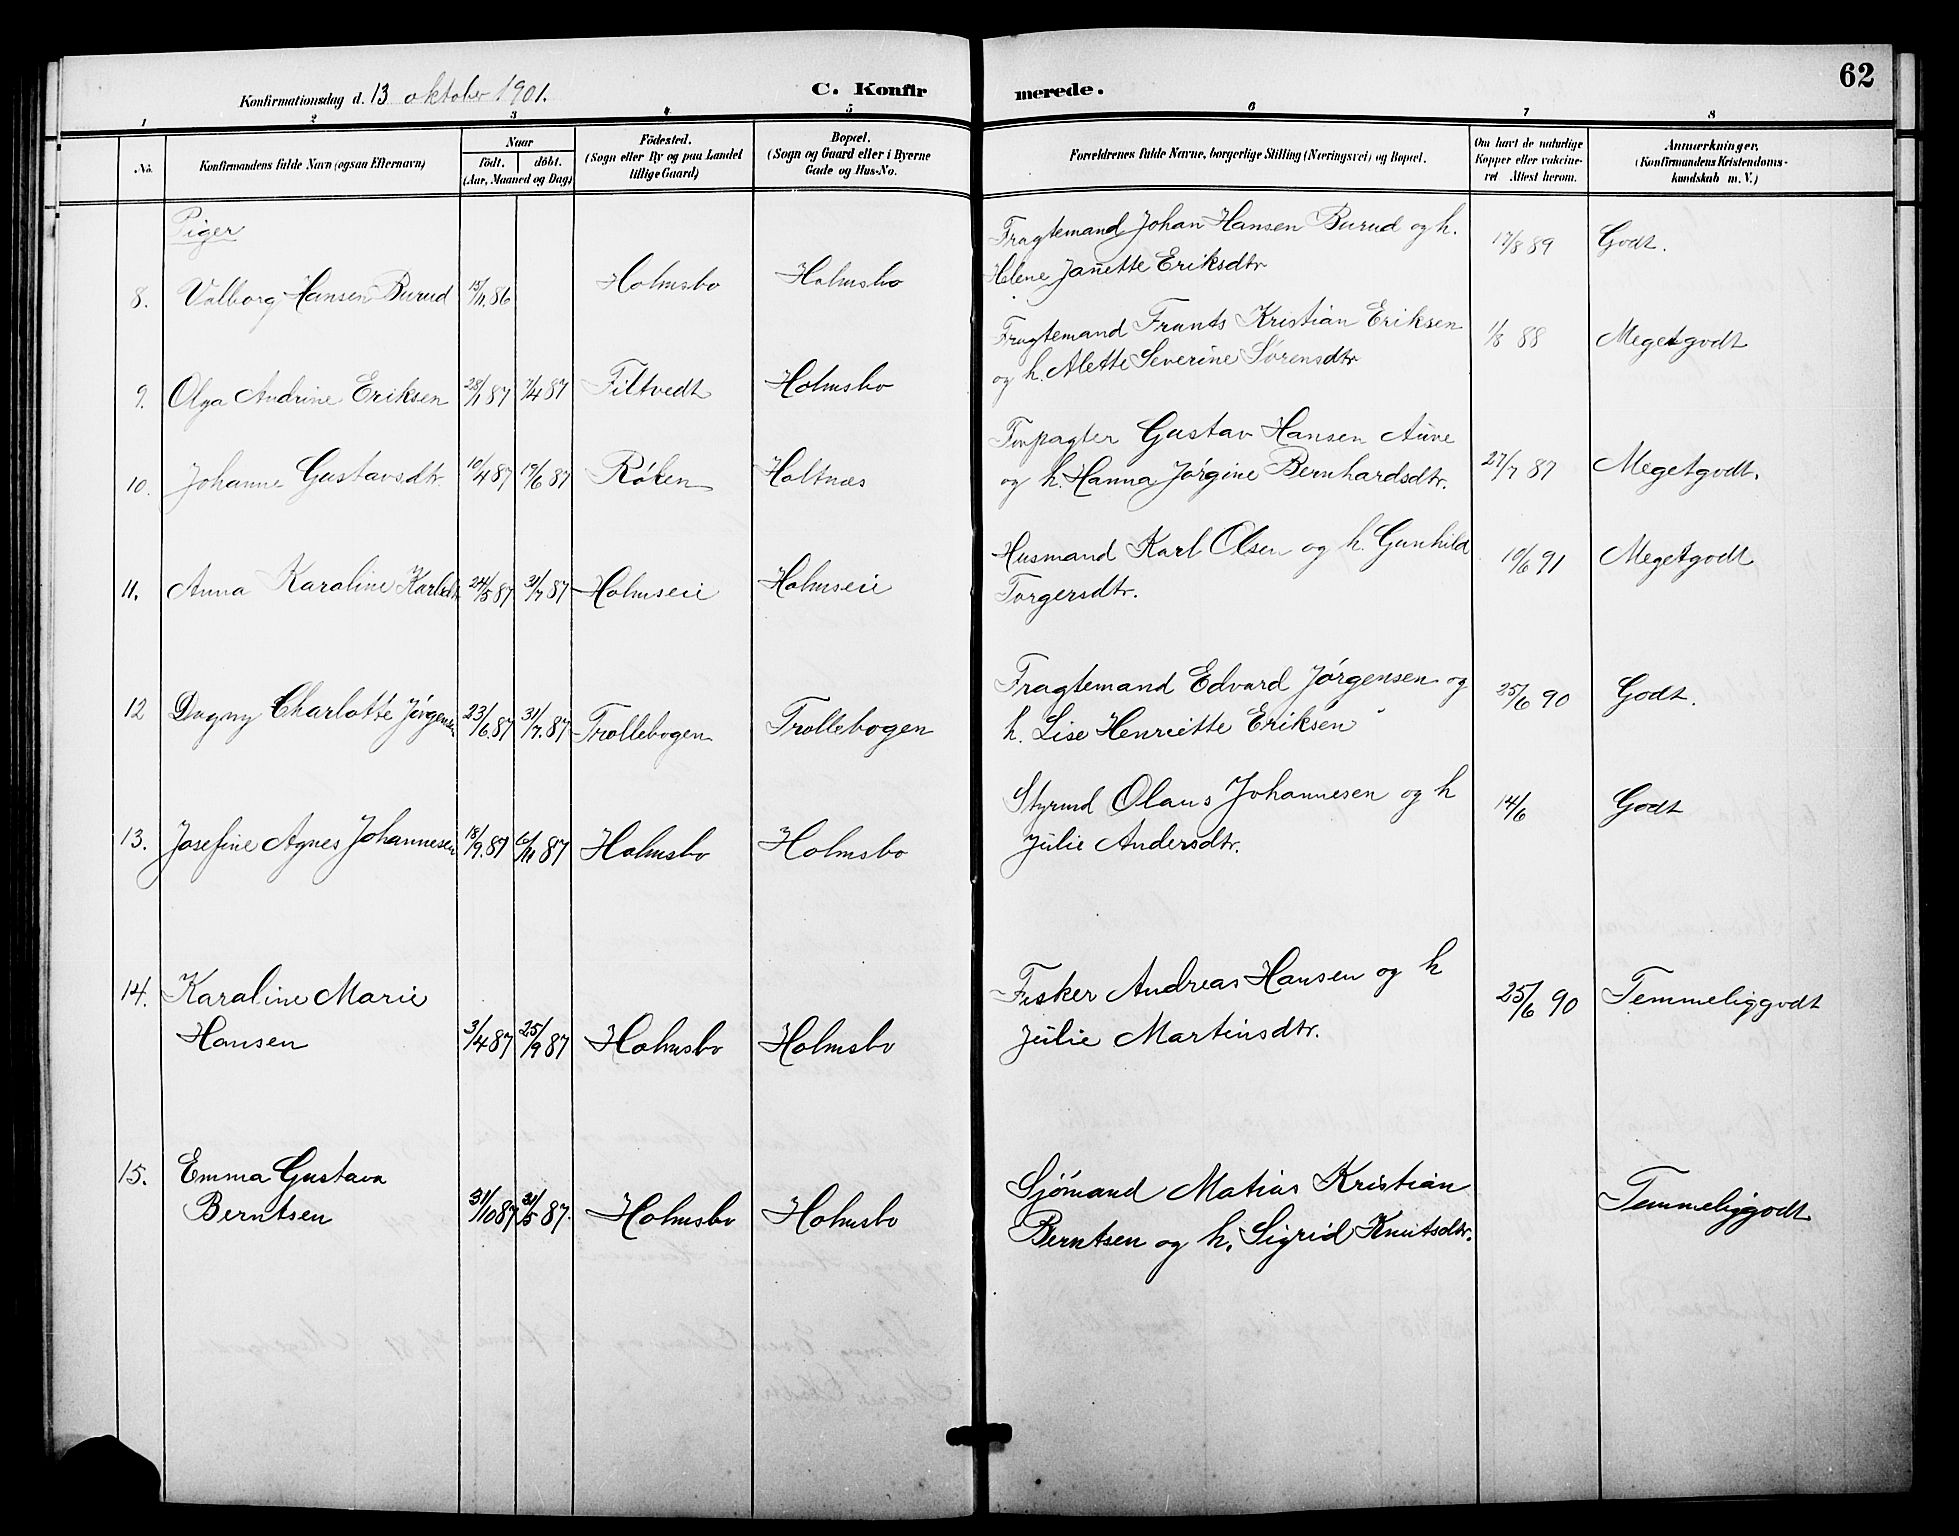 62
Konfirmationsdag d. 13 oktober 1901.
C. Konfir
merede.
1 2 3 4 5 6 7 8
No.
Konfirmandens fulde Navn (ogsaa Efternavn)
Naar
födt. döbt.
(Aar, Maaned og Dag)
Födested.
(Sogn eller By og paa Landet
tillige Gaard)
Bopæl.
(Sogn og Gaard eller i Byerne
Gade og Hus-No.
Forældrenes fulde Navne, borgerlige Stilling (Næringsvei) og Bopæl.
Om havt de naturlige
Kopper eller vaccine-
ret Attest herom.
Anmærkninger.
(Konfirmandens Kristendoms-
kundskab m. V.)
Piger
8. Valborg Hansen Burud 15/11 86 Holmsbo Holmsbo
Fragtemand Johan Hansen Burud og h.
Helene Janette Eriksdtr
17/8 89 Godt.
9. Olga Andrine Eriksen 28/1 87 7/4 87 Filtvedt Holmsbo
Fragtemand Frants Kristian Eriksen
og h. Alette Severine Sørensdtr
1/8 88 Megetgodt
10. Johanne Gustavsdtr. 10/4 87 19/6 87 Røken Holtnæs
Forpagter Gustav Hansen Aune
og h. Hanna Jørgine Bernhardsdtr.
27/7 87 Megetgodt.
11. Anna Karoline Karlsdtr 24/5 87 31/7 87 Holmseie Holmseie
Husmand Karl Olsen og h. Gunhild
Torgersdtr.
10/6 91 Megetgodt
12 Dagny Charlotte Jörgensen 23/6. 87 31/7. 87 Trollebogen Trollebogen
Fragtemand Edvard Jørgensen og
h. Lise Henriette Eriksen
25/6 90 Godt.
13. Josefine Agnes Johannesen 18/9. 87 6/11 87 Holmsbo Holmsbo
Styrmd Olaus Johannesen og h
Julie Andersdtr.
14/6 Godt
14. Karaline Marie
Hansen 3/4 87 25/9 87 Holmsbo Holmsbo
Fisker Andreas Hansen og h
Julie Martinsdtr.
25/6 90 Temmeliggodt
15. Emma Gustava
Berntsen 31/10 87 31/5 87. Holmsbo Holmsbo
Sjømand Matias Kristian
Berntsen og h. Sigrid Knutsdtr.
Temmeliggodt